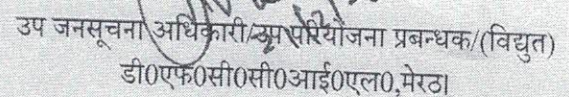 उप जनसूचना अधिकारी/उप परियोजना प्रबन्धक/(विद्युत)
डी0एफ0सी0सी0आई0एल0,मेरठ।